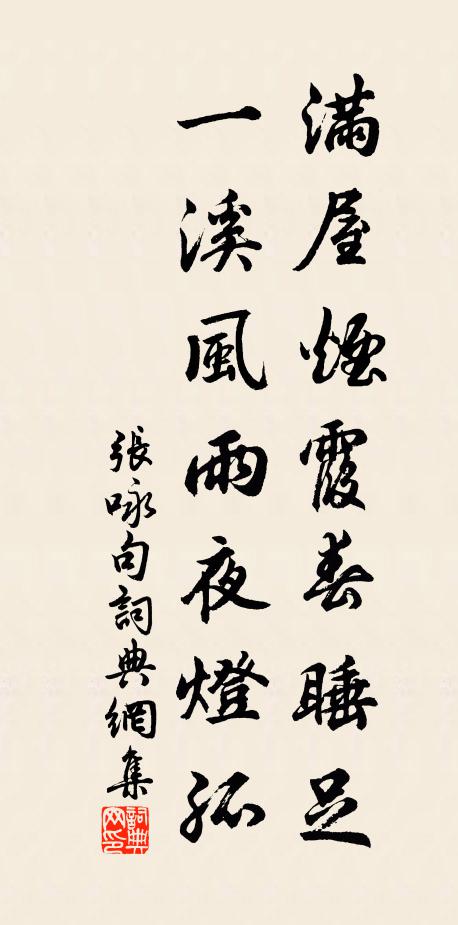 滿屋煙霞春睡足
一溪風雨夜燈孤
張咏句詞典網集
詞典网印